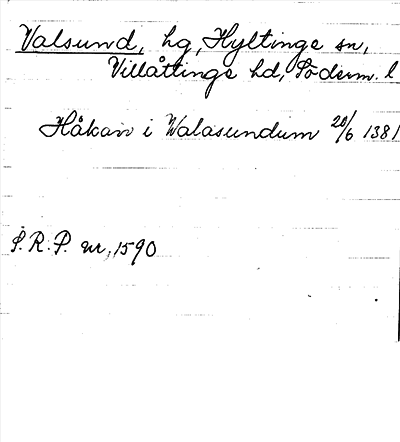 Valsund, hg, Hyltinge sn,
Villåttinge hd, Söderm. l
Håkan i Walasundum 20/6 1381
S.R.P. nr, 1590